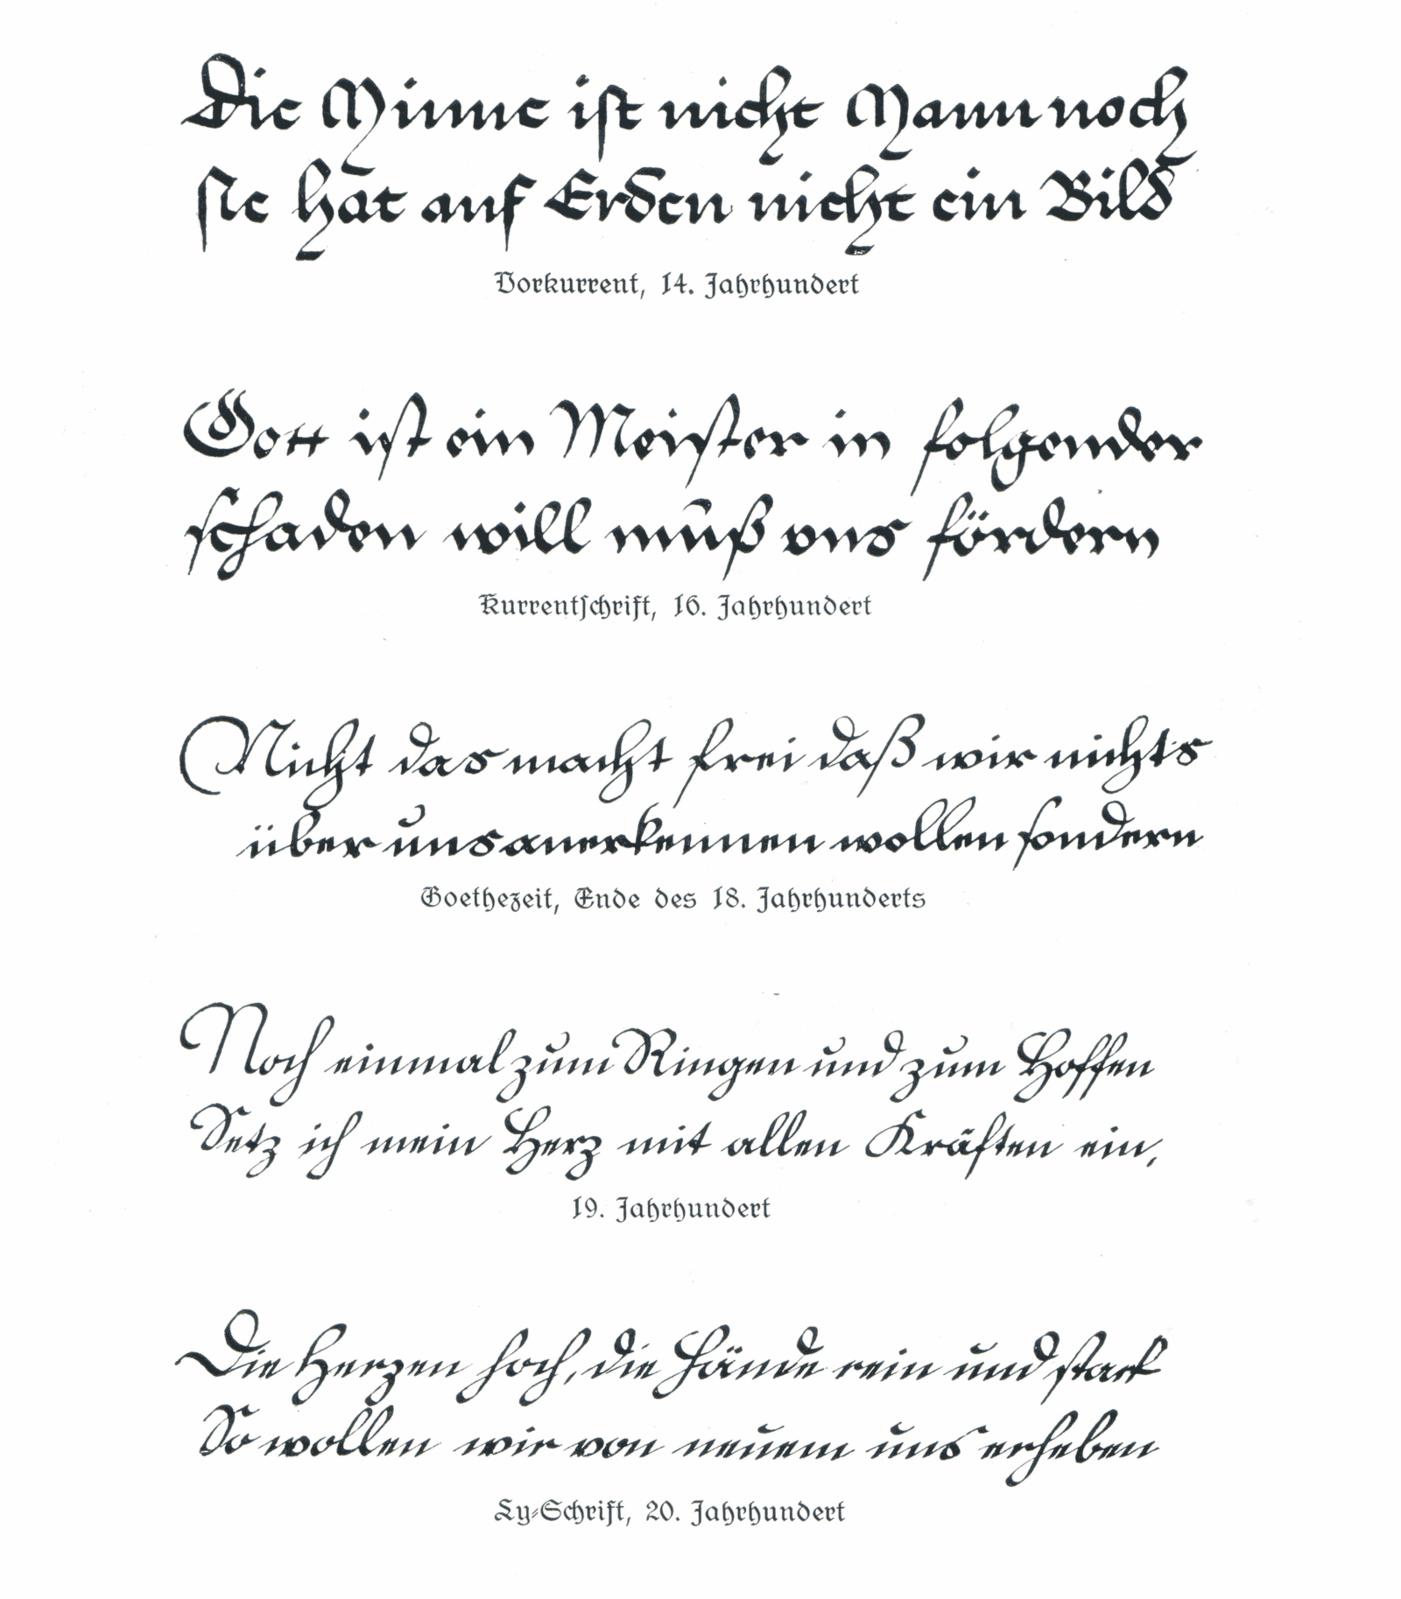 Die Minne ist nicht Mann noch
sie hat auf Erden nicht ein Bild
Vorkurrent, 14. Jahrhundert
Gott ist ein Meister in folgender
schaden will muß vns fördern
Kurrentschrift, 16. Jahrhundert
Nicht das macht frei daß wir nichts
über uns anerkennen wollen sondern
Goethezeit, Ende des 18. Jahrhunderts
Noch einmal zum Ringen und zum Hoffen
Setz ich mein Herz mit allen Kräften ein,
19. Jahrhundert
Die Herzen hoch, die Hände rein und stark
So wollen wir von neuem uns erheben
Ly-Schrift, 20. Jahrhundert